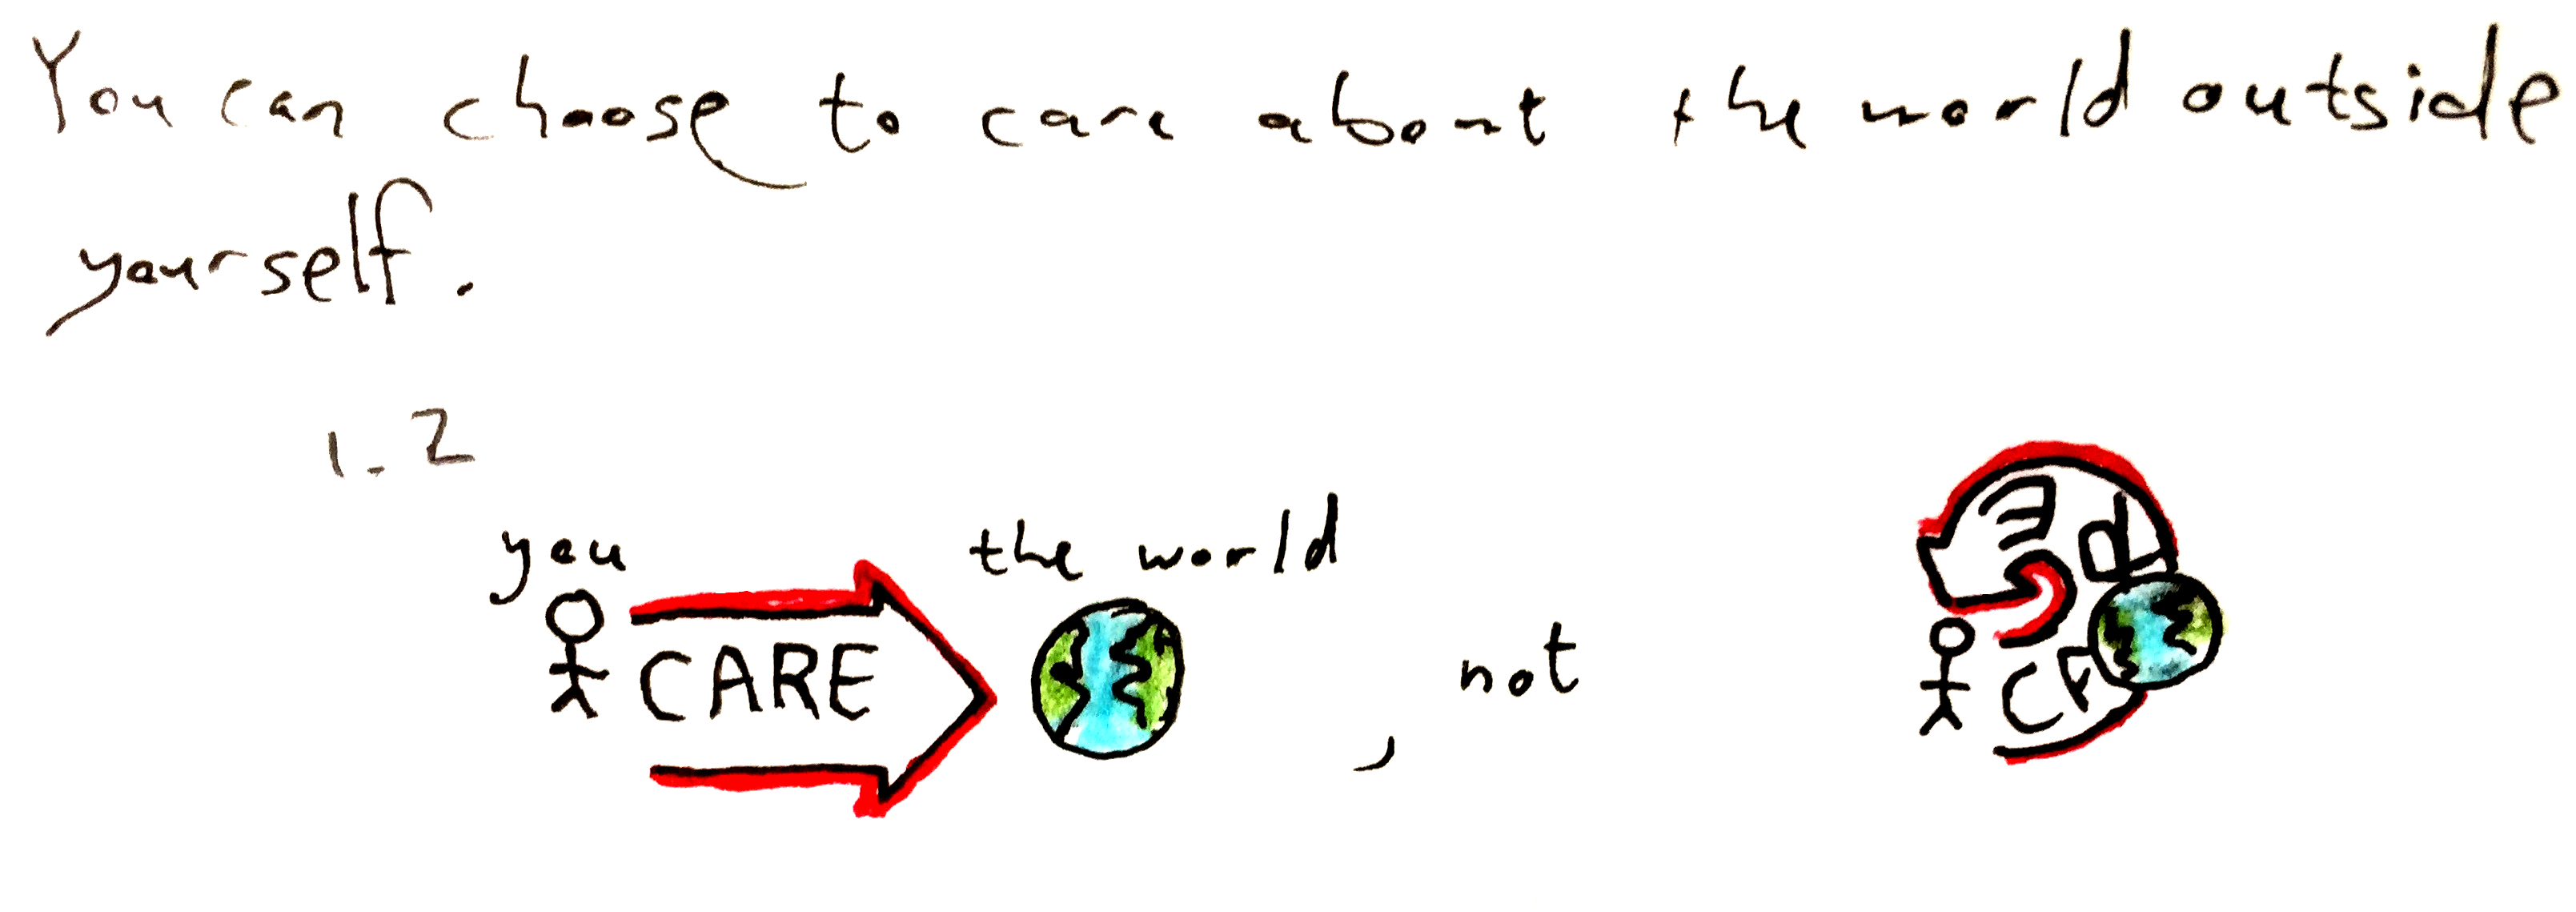 You can choose to care about the world outside
yourself.
1.2
you
the world
CARE
, not
CA
RE